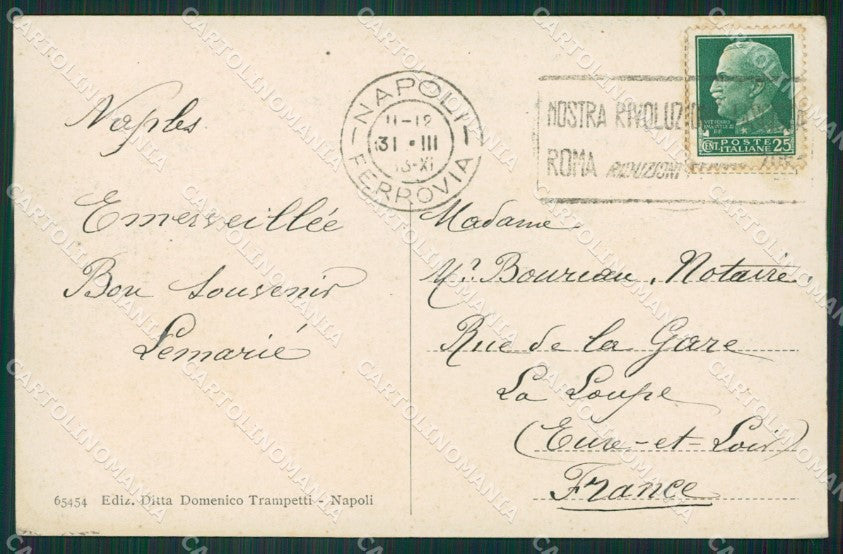 Naples
Emerveillée
Bon Souvenir
Lemarié
65454 Ediz. Ditta Domenico Trampetti - Napoli
NAPOLI
11-12
31 · III
33-XI
FERROVIA
NOSTRA RIVOLUZIO
ROMA RIDUZIONI
POSTE
ITALIANE
CENT. 25
Madame
Mᵉ Boureau, Notaire,
Rue de la Gare
La Loupe
(Eure-et-Loir)
France
CARTOLINOMANIA